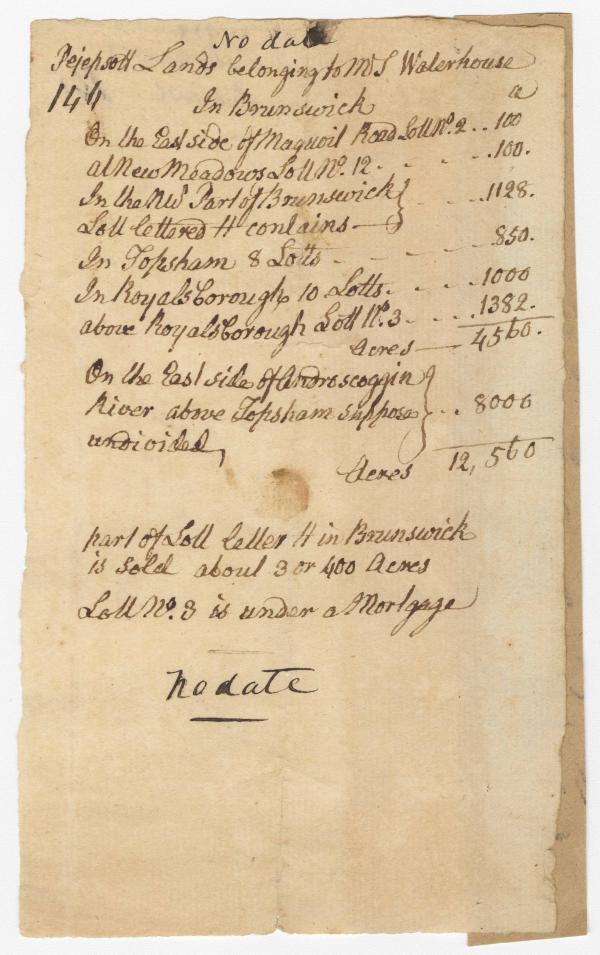 No date
Pejepsott Lands belonging to Mrs Waterhouse
144 In Brunswick a
On the East side of Maquoit Road Lott No. 2 .. 100
at New Meadows Lott No. 12 . . . . 100.
In the NW Part of Brunswick } . . 1128.
Lott lettered H contains
In Topsham 8 Lotts - - - - 850.
In Royalsborough 10 Lotts. . . . 1000
above Royalsborough Lott No. 3 . . . 1382.
Acres — 4560.
On the East side of Androscoggin }
River above Topsham suppose } . . 8000
undivided,
Acres 12,560
part of Lott letter H in Brunswick
is sold about 3 or 400 Acres
Lott No. 3 is under a Mortgage
No date